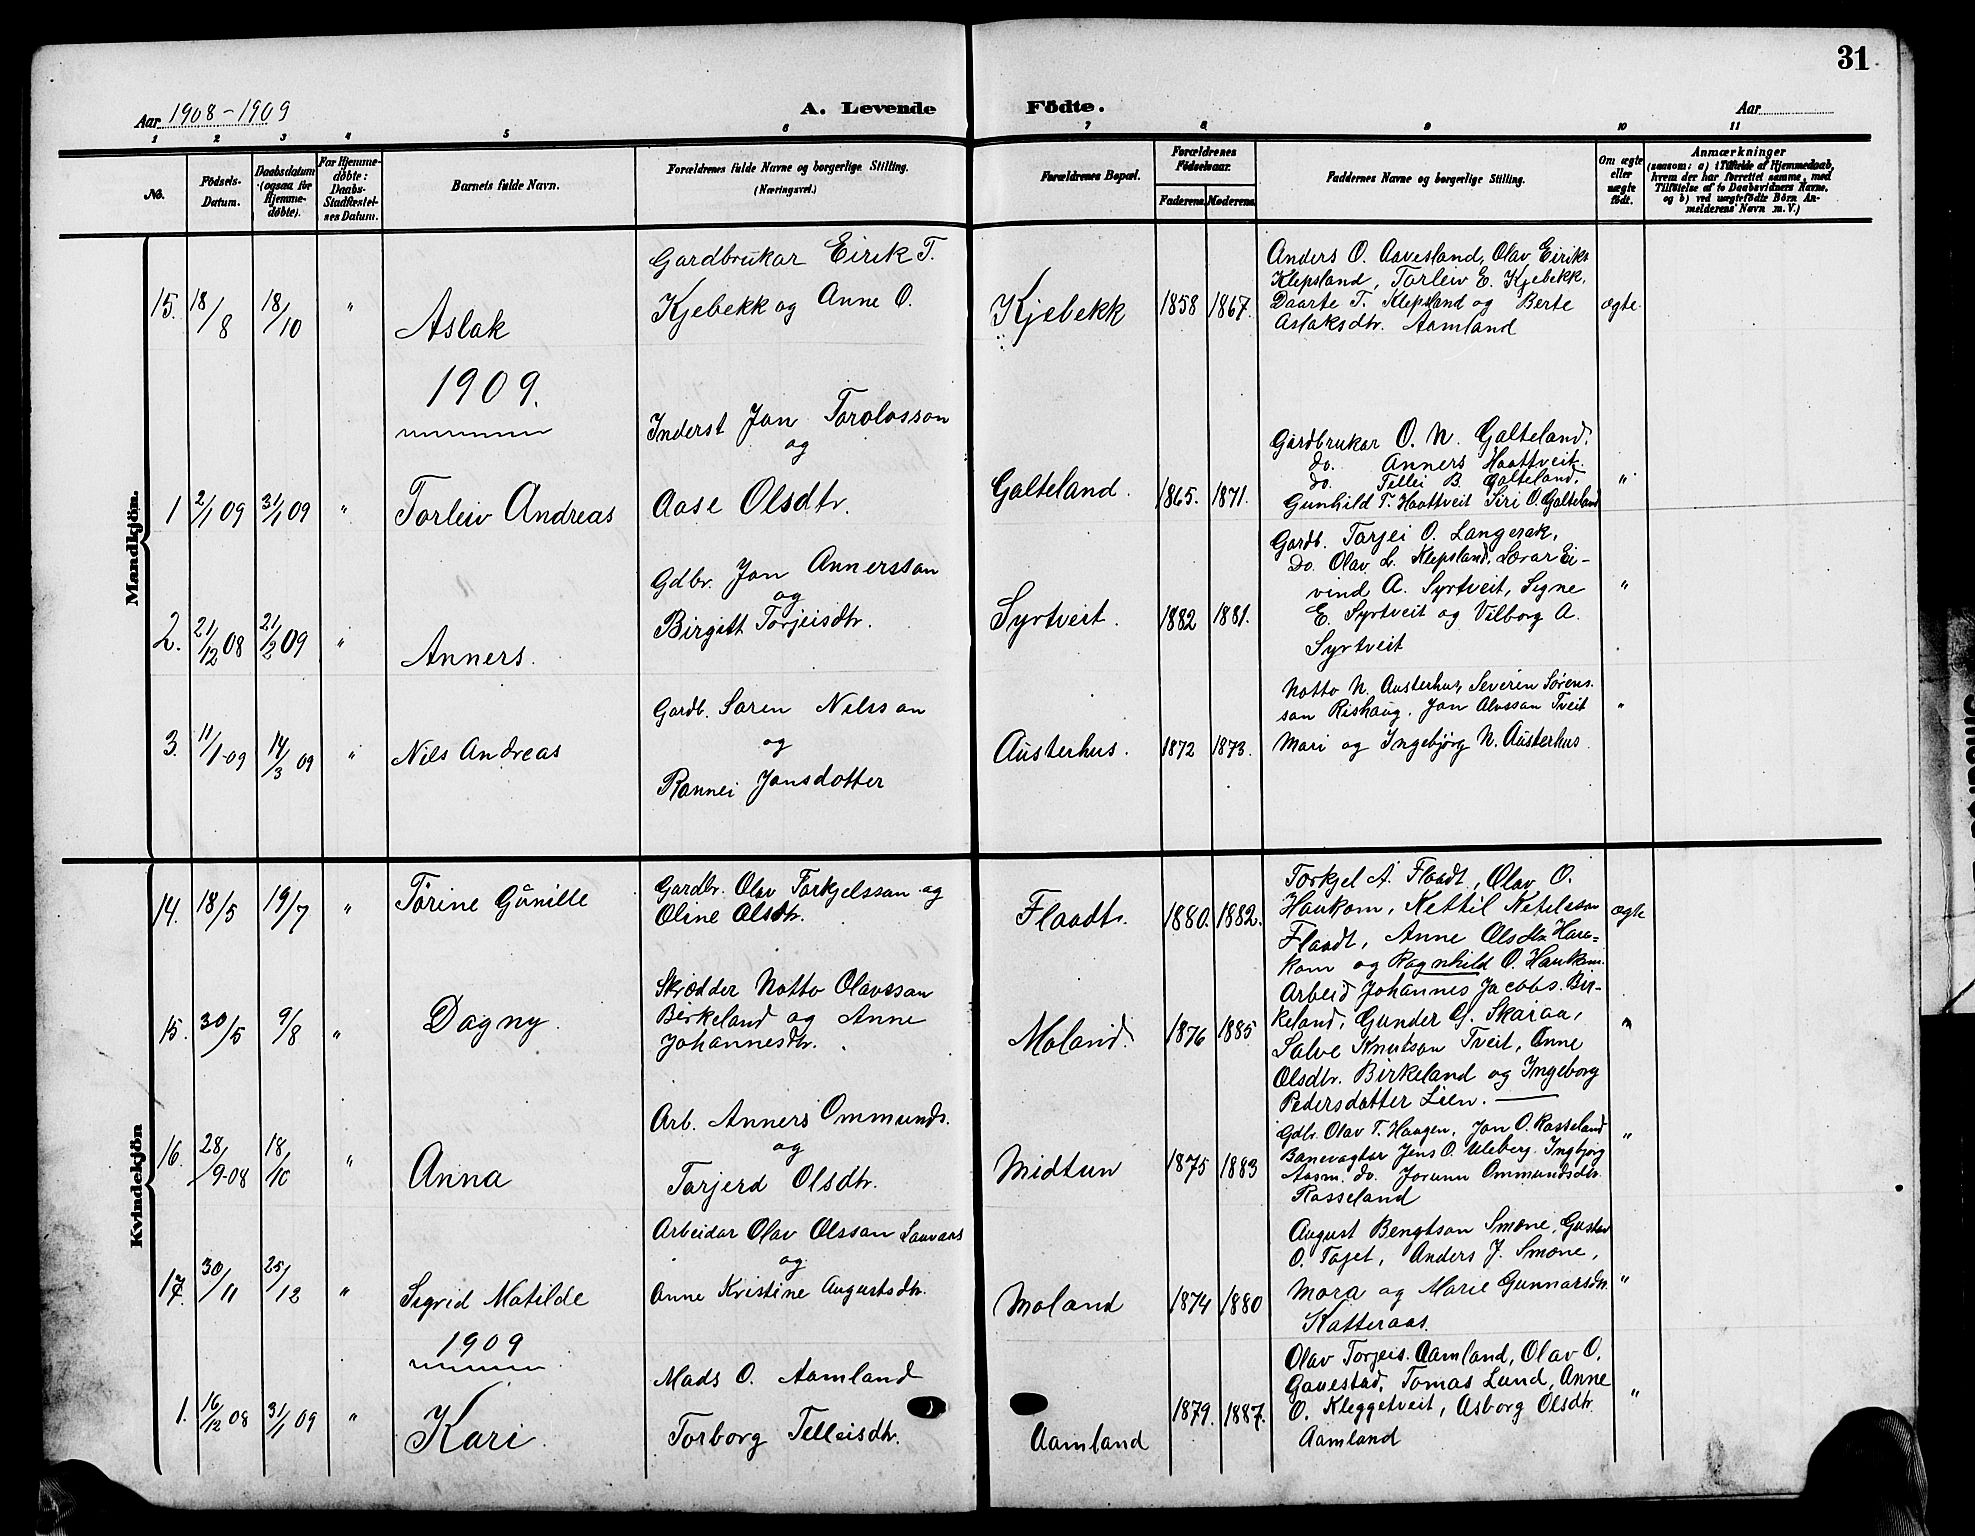 31
Aar 1908-1909
A. Levende Födte.
Aar
1 2 3 4 5 6 7 8 9 10 11
No.
Födsels-Datum.
Daabsdatum (ogsaa for Hjemme-döbte).
For Hjemme-döbte: Daabs-Stadfæstel-ses Datum.
Barnets fulde Navn.
Forældrenes fulde Navne og borgerlige Stilling.
(Næringsvei.)
Forældrenes Bopæl.
Forældrenes Födselsaar.
Faderens Moderens
Faddernes Navne og borgerlige Stilling.
Om ægte eller uægte födt.
Anmærkninger
(saasom: a) i Tilfælde af Hjemmedaab,
hvem der har forrettet samme, med
Tilföielse af to Daabsvidners Navne,
og b) ved uægtefödte Börn An-
melderens Navn m.V.)
Mandkjön.
15. 18/8 18/10 " Aslak
Gardbrukar Eirik T.
Kjebekk og Anne O.
Kjebekk 1858 1867.
Anders O. Aavesland, Olav Eiriks
Klepsland, Torleiv E. Kjebekk,
Daarte T. Klepsland og Berte
Aslaksdtr. Aamland
ægte
1909.
1 2/1 09 31/1 09 " Torleiv Andreas
Inderst Jon Tarolosson
og
Aase Olsdtr.
Galteland. 1865. 1871.
Gardbrukar O. N. Galteland.
do. Anners Haattveit.
do. Tellei B. Galteland,
Gunhild T. Haattveit Siri O. Galteland
"
2. 21/12 08 21/2 09 " Anners.
Gdbr. Jon Annersson
og
Birgitt Torjeisdtr.
Syrtveit. 1882 1881.
Gardb. Torjei O. Langerak,
Do. Olav L. Klepsland, Lærar Ei-
vind A. Syrtveit, Signe
E. Syrtveit og Vilborg A.
Syrtveit
"
3. 11/1-09 14/3 09 " Nils Andreas
Gardb. Søren Nilsson
og
Rannei Jonsdotter
Austerhus. 1872 1873.
Notto N. Austerhus, Severin Sørens.
son Rishaug. Jon Alvsson Tveit
Mari og Ingebjørg N. Austerhus.
"
Kvindekjön
14. 18/5 19/7 " Torine Gunille
Gardbr. Olav Torkjelsson og
Oline Olsdtr.
Flaadt. 1880. 1882.
Torkjel A. Flaadt, Olav O.
Haukom, Kettil Ketilsson
Flaadt, Anne Olsdtr. Hau-
kom og Ragnhild O. Haukom.
ægte
15. 30/5 9/8 " Dagny.
Skrædder Notto Olavsson
Birkeland og Anne
Johannesdtr.
Moland. 1876 1885
Arbeid Johannes Jacobs. Bir-
keland, Gunder G. Skaraa,
Salve Knutson Tveit, Anne
Olsdtr. Birkeland og Ingeborg
Pedersdatter Lien.
"
16. 28/9-08 18/10 " Anna
Arb. Anners Ommunds.
og
Torjerd Olsdtr.
Midtun 1875 1883
Gdbr. Olav T. Haugen, Jon O. Rosseland
Banevagtar Jens O. Uleberg. Ingbjørg
Aasm. do. Jorunn Ommundsdtr.
Rosseland
"
17. 30/11 25/12 " Sigrid Matilde
Arbeidar Olav Olsson
og
Anne Kristine Augustsdtr.
Moland 1874 1880
August Bengtson Smøne, Gustav
O. Tajet, Anders J. Smøne,
Mora og Marie Gunnarsdtr.
Katteraas.
"
1909
1. 16/12 08 31/1 09 " Kari.
Mads O. Aamland
Torborg Telleisdtr.
Aamland 1879. 1887.
Olav Torjeis. Aamland, Olav O.
Gavestad, Tomas Lund, Anne
O. Kleggetveit, Asborg Olsdtr.
Aamland
"